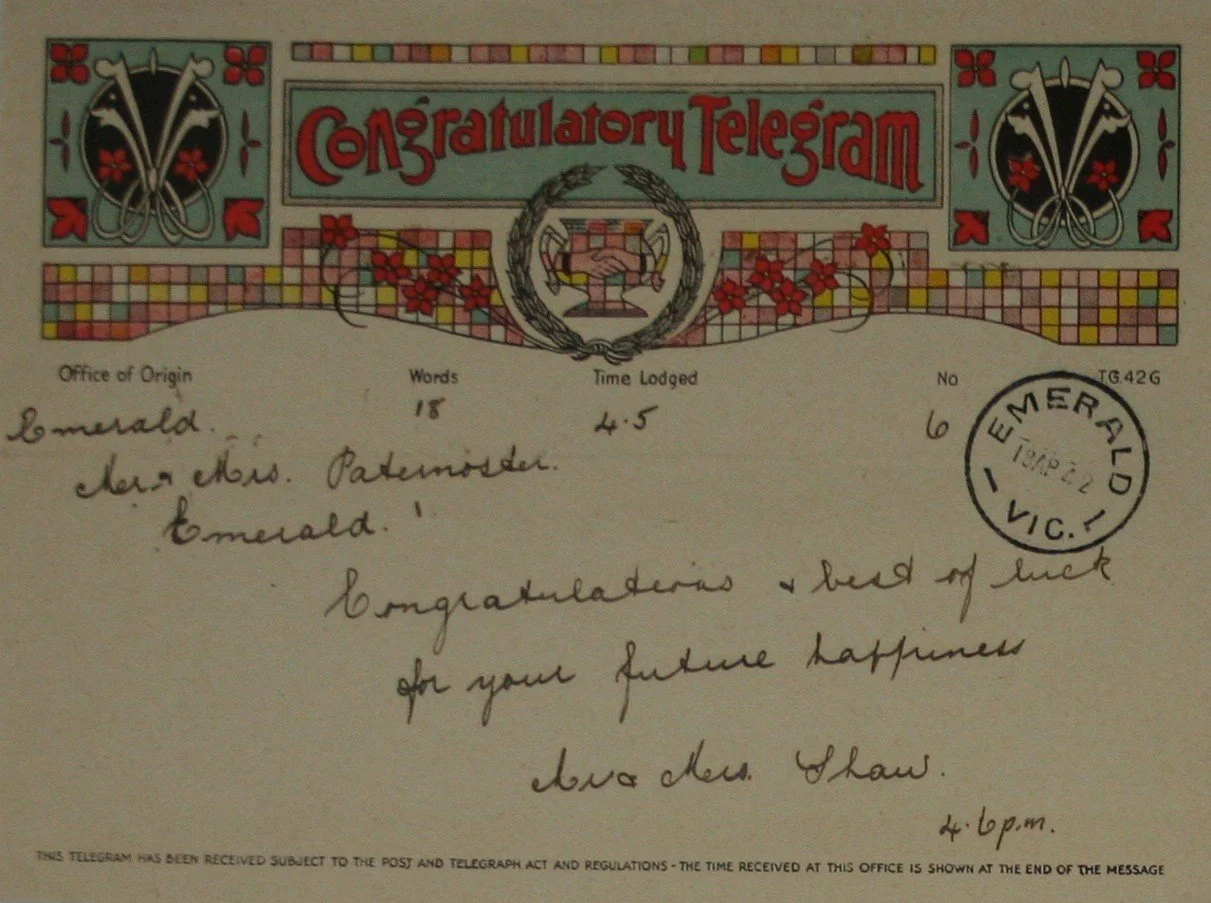 Congratulatory Telegram
Office of Origin Words Time Lodged No TG.42G
Emerald. 18 4.5 6
EMERALD
18 AP 22
VIC.
Mr & Mrs. Paternoster.
Emerald.
Congratulations & best of luck
for your future happiness
Mr & Mrs. Shaw.
4.6 p.m.
THIS TELEGRAM HAS BEEN RECEIVED SUBJECT TO THE POST AND TELEGRAPH ACT AND REGULATIONS - THE TIME RECEIVED AT THIS OFFICE IS SHOWN AT THE END OF THE MESSAGE